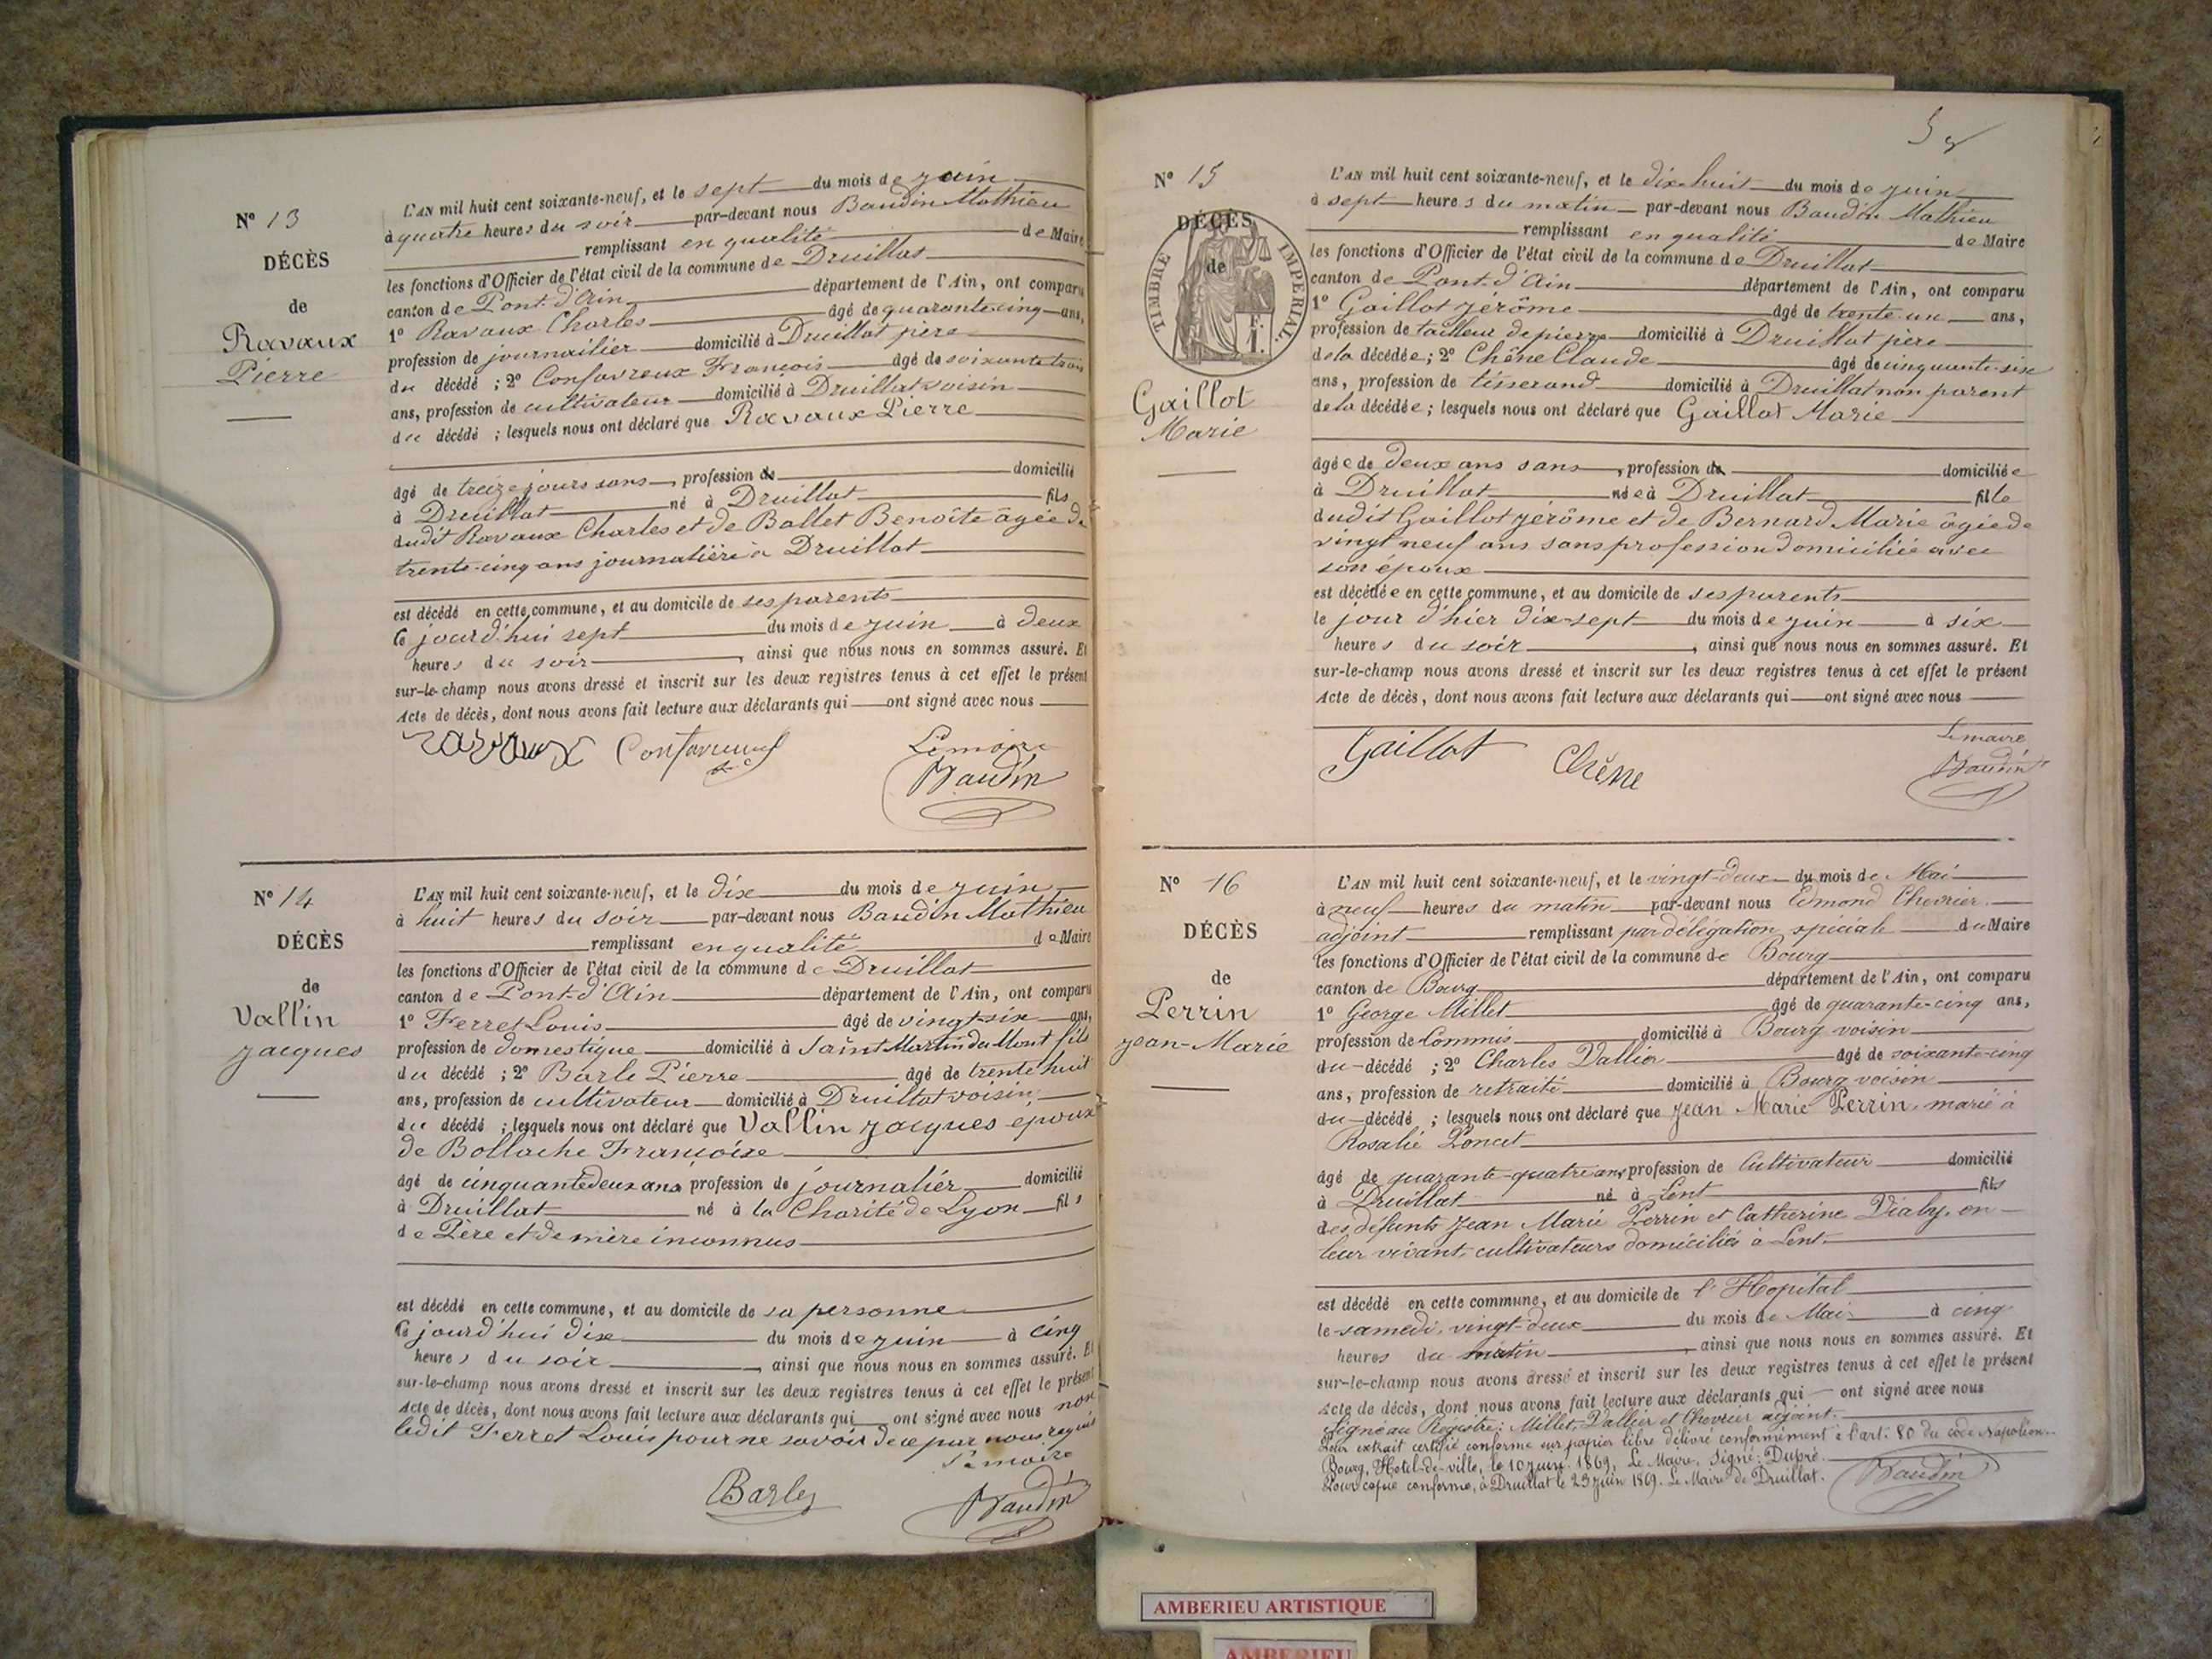 N° 13
DÉCÈS
de
Ravaux
Pierre
L'AN mil huit cent soixante-neuf, et le sept du mois de juin
à quatre heures du soir par-devant nous Baudin Mathieu
remplissant en qualité de Maire
les fonctions d'Officier de l'état civil de la commune de Druillat
canton de Pont-d'Ain département de l'Ain, ont comparu
1° Ravaux Charles âgé de quarante-cinq ans,
profession de journailier domicilié à Druillat père
du décédé ; 2° Confavreux François âgé de soixante trois
ans, profession de cultivateur domicilié à Druillat voisin
du décédé ; lesquels nous ont déclaré que Ravaux Pierre
âgé de treize jours sans, profession de domicilié
à Druillat né à Druillat fils
dudit Ravaux Charles et de Ballet Benoîte âgée de
trente-cinq ans journalière à Druillat
est décédé en cette commune, et au domicile de ses parents
Ce jourd'hui sept du mois de juin à deux
heures du soir, ainsi que nous nous en sommes assuré. Et
sur-le-champ nous avons dressé et inscrit sur les deux registres tenus à cet effet le présent
Acte de décès, dont nous avons fait lecture aux déclarants qui ont signé avec nous
ravaux Confavreux Le maire
Baudin
N° 14
DÉCÈS
de
Vallin
Jacques
L'AN mil huit cent soixante-neuf, et le dix du mois de juin
à huit heures du soir par-devant nous Baudin Mathieu
remplissant en qualité de Maire
les fonctions d'Officier de l'état civil de la commune de Druillat
canton de Pont-d'Ain département de l'Ain, ont comparu
1° Ferret Louis âgé de vingt-six ans,
profession de domestique domicilié à Saint Martin du Mont fils
du décédé ; 2° Barle Pierre âgé de trente huit
ans, profession de cultivateur domicilié à Druillat voisin
du décédé ; lesquels nous ont déclaré que Vallin Jacques époux
de Bollache Françoise
âgé de cinquante deux ans profession de journalier domicilié
à Druillat né à la Charité de Lyon fils
de Père et de mère inconnus
est décédé en cette commune, et au domicile de sa personne
Ce jourd'hui dix du mois de juin à cinq
heures du soir, ainsi que nous nous en sommes assuré. Et
sur-le-champ nous avons dressé et inscrit sur les deux registres tenus à cet effet le présent
Acte de décès, dont nous avons fait lecture aux déclarants qui ont signé avec nous non
ledit Ferret Louis pour ne savoir de ce par nous requis
Le maire
Barle Baudin
N° 15
DÉCÈS
de
TIMBRE IMPÉRIAL
Gaillot
Marie
L'AN mil huit cent soixante-neuf, et le dix-huit du mois de juin
à sept heures du matin par-devant nous Baudin Mathieu
remplissant en qualité de Maire
les fonctions d'Officier de l'état civil de la commune de Druillat
canton de Pont-d'Ain département de l'Ain, ont comparu
1° Gaillot Jérôme âgé de trente un ans,
profession de tailleur de pierre domicilié à Druillat père
de la décédée ; 2° Chêne Claude âgé de cinquante-six
ans, profession de tisserand domicilié à Druillat non parent
de la décédée ; lesquels nous ont déclaré que Gaillot Marie
âgée de deux ans sans, profession de domiciliée
à Druillat née à Druillat fille
dudit Gaillot Jérôme et de Bernard Marie âgée de
vingt neuf ans sans profession domiciliée avec
son époux
est décédée en cette commune, et au domicile de ses parents
le jour d'hier dix-sept du mois de juin à six
heures du soir, ainsi que nous nous en sommes assuré. Et
sur-le-champ nous avons dressé et inscrit sur les deux registres tenus à cet effet le présent
Acte de décès, dont nous avons fait lecture aux déclarants qui ont signé avec nous
Gaillot Chêne Le maire
Baudin
N° 16
DÉCÈS
de
Perrin
Jean-Marie
L'AN mil huit cent soixante-neuf, et le vingt-deux du mois de Mai
à neuf heures du matin par-devant nous Edmond Chevrier
adjoint remplissant par délégation spéciale du Maire
les fonctions d'Officier de l'état civil de la commune de Bourg
canton de Bourg département de l'Ain, ont comparu
1° George Millet âgé de quarante-cinq ans,
profession de Commis domicilié à Bourg voisin
du décédé ; 2° Charles Vallier âgé de soixante-cinq
ans, profession de retraité domicilié à Bourg voisin
du décédé ; lesquels nous ont déclaré que Jean Marie Perrin, marié à
Rosalie Poncet
âgé de quarante-quatre ans profession de Cultivateur domicilié
à Druillat né à Lent fils
des défunts Jean Marie Perrin et Catherine Vialy, en
leur vivant, cultivateurs domiciliés à Lent
est décédé en cette commune, et au domicile de l'Hopital
le samedi, vingt-deux du mois de Mai à cinq
heures du matin, ainsi que nous nous en sommes assuré. Et
sur-le-champ nous avons dressé et inscrit sur les deux registres tenus à cet effet le présent
Acte de décès, dont nous avons fait lecture aux déclarants qui ont signé avec nous
Signé au Registre: Millet, Vallier et Chevrier adjoint.
Pour extrait certifié conforme sur papier libre délivré conformément à l'art: 80 du code Napoléon.
Bourg, Hotel-de-ville, le 10 juin 1869, Le Maire. Signé: Dupré.
Pour copie conforme, à Druillat le 23 juin 1869. Le Maire de Druillat. Baudin
AMBERIEU ARTISTIQUE
AMBERIEU